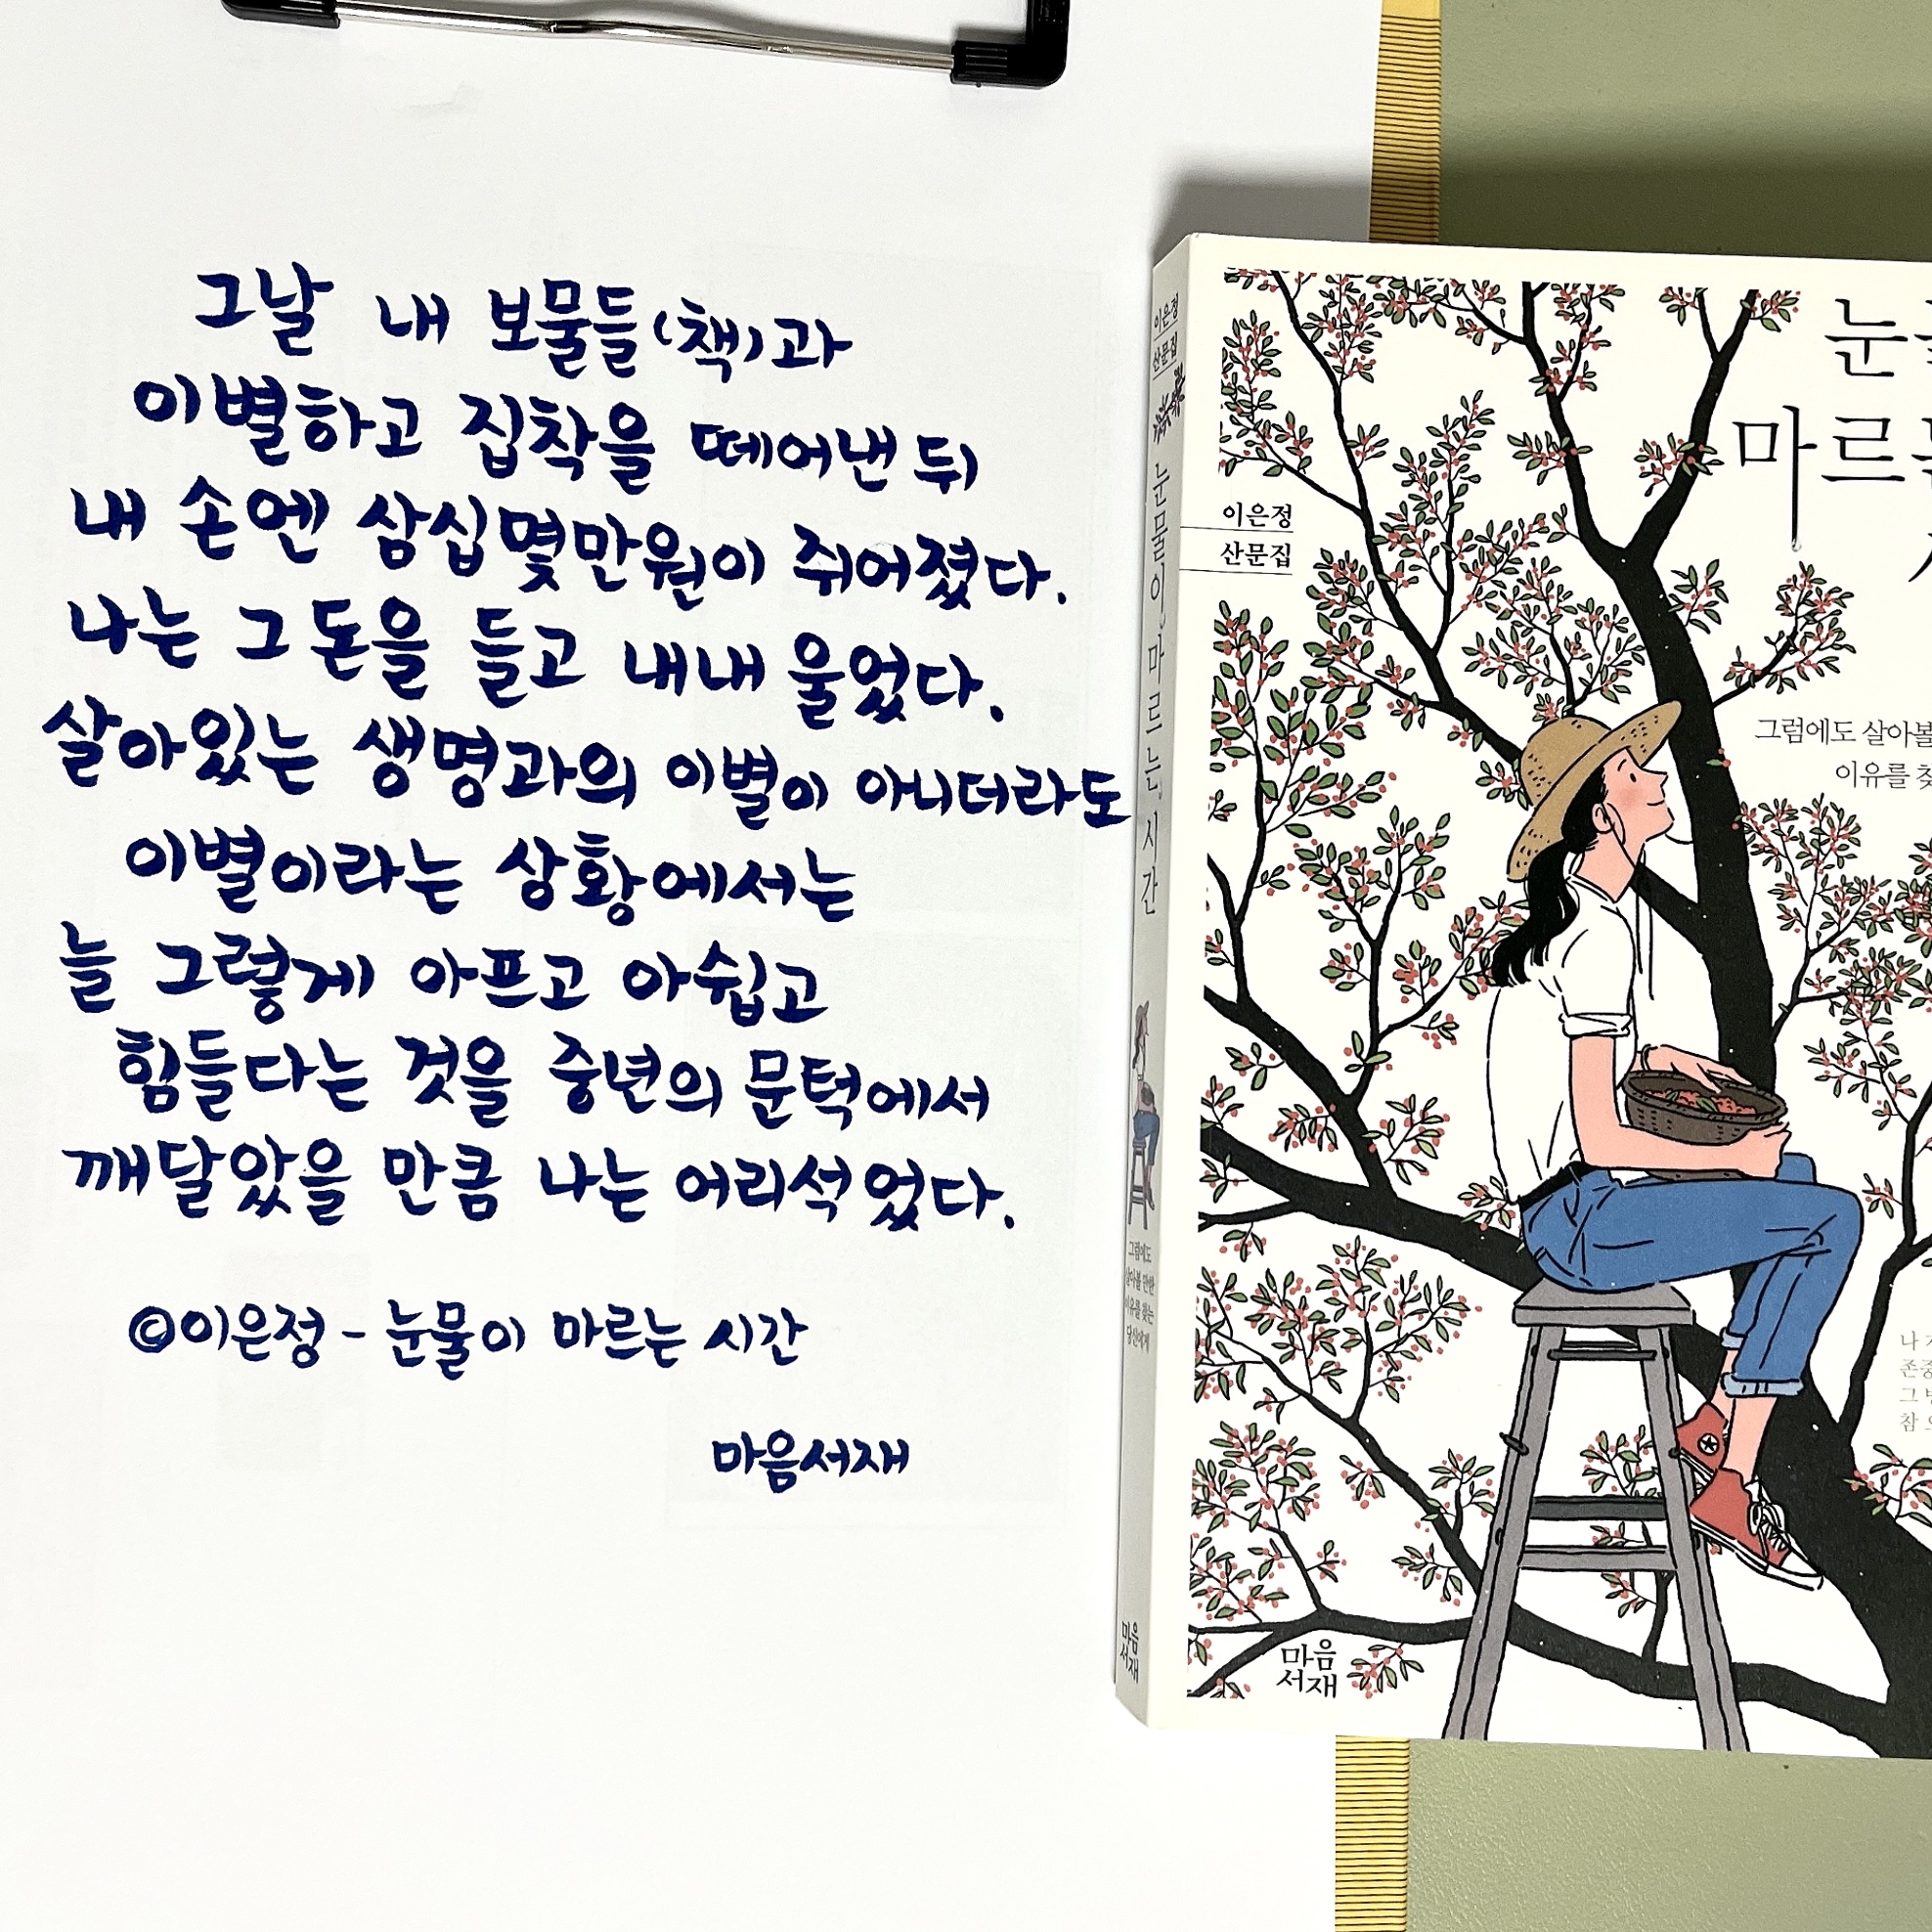 그날 내 보물들(책)과
이별하고 집착을 떼어낸 뒤
내 손엔 삼십몇만원이 쥐어졌다.
나는 그 돈을 들고 내내 울었다.
살아있는 생명과의 이별이 아니더라도
이별이라는 상황에서는
늘 그렇게 아프고 아쉽고
힘들다는 것을 중년의 문턱에서
깨달았을 만큼 나는 어리석었다.
©이은정 - 눈물이 마르는 시간
마음서재
이은정
산문집
눈물이 마르는 시간
그럼에도
살아볼 만한
이유를 찾는
당신에게
마음
서재
마르
이은정
산문집
그럼에도 살아볼
이유를
마음
서재